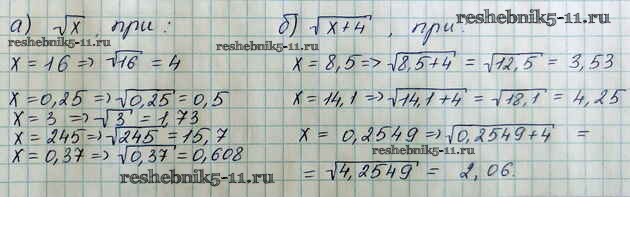 а) √x при:
reshebnik5-11.ru
x = 16 => √16 = 4
x = 0,25 => √0,25 = 0,5
x = 3 => √3 = 1,73
x = 245 => √245 = 15,7
x = 0,37 => √0,37 = 0,608
reshebnik5-11.ru
б) √x+4, при:
reshebnik5-11.ru
reshebnik5-11.ru
x = 8,5 => √8,5+4 = √12,5 = 3,53
x = 14,1 => √14,1+4 = √18,1 = 4,25
x = 0,2549 => √0,2549+4 =
reshebnik5-11.ru
= √4,2549 = 2,06.